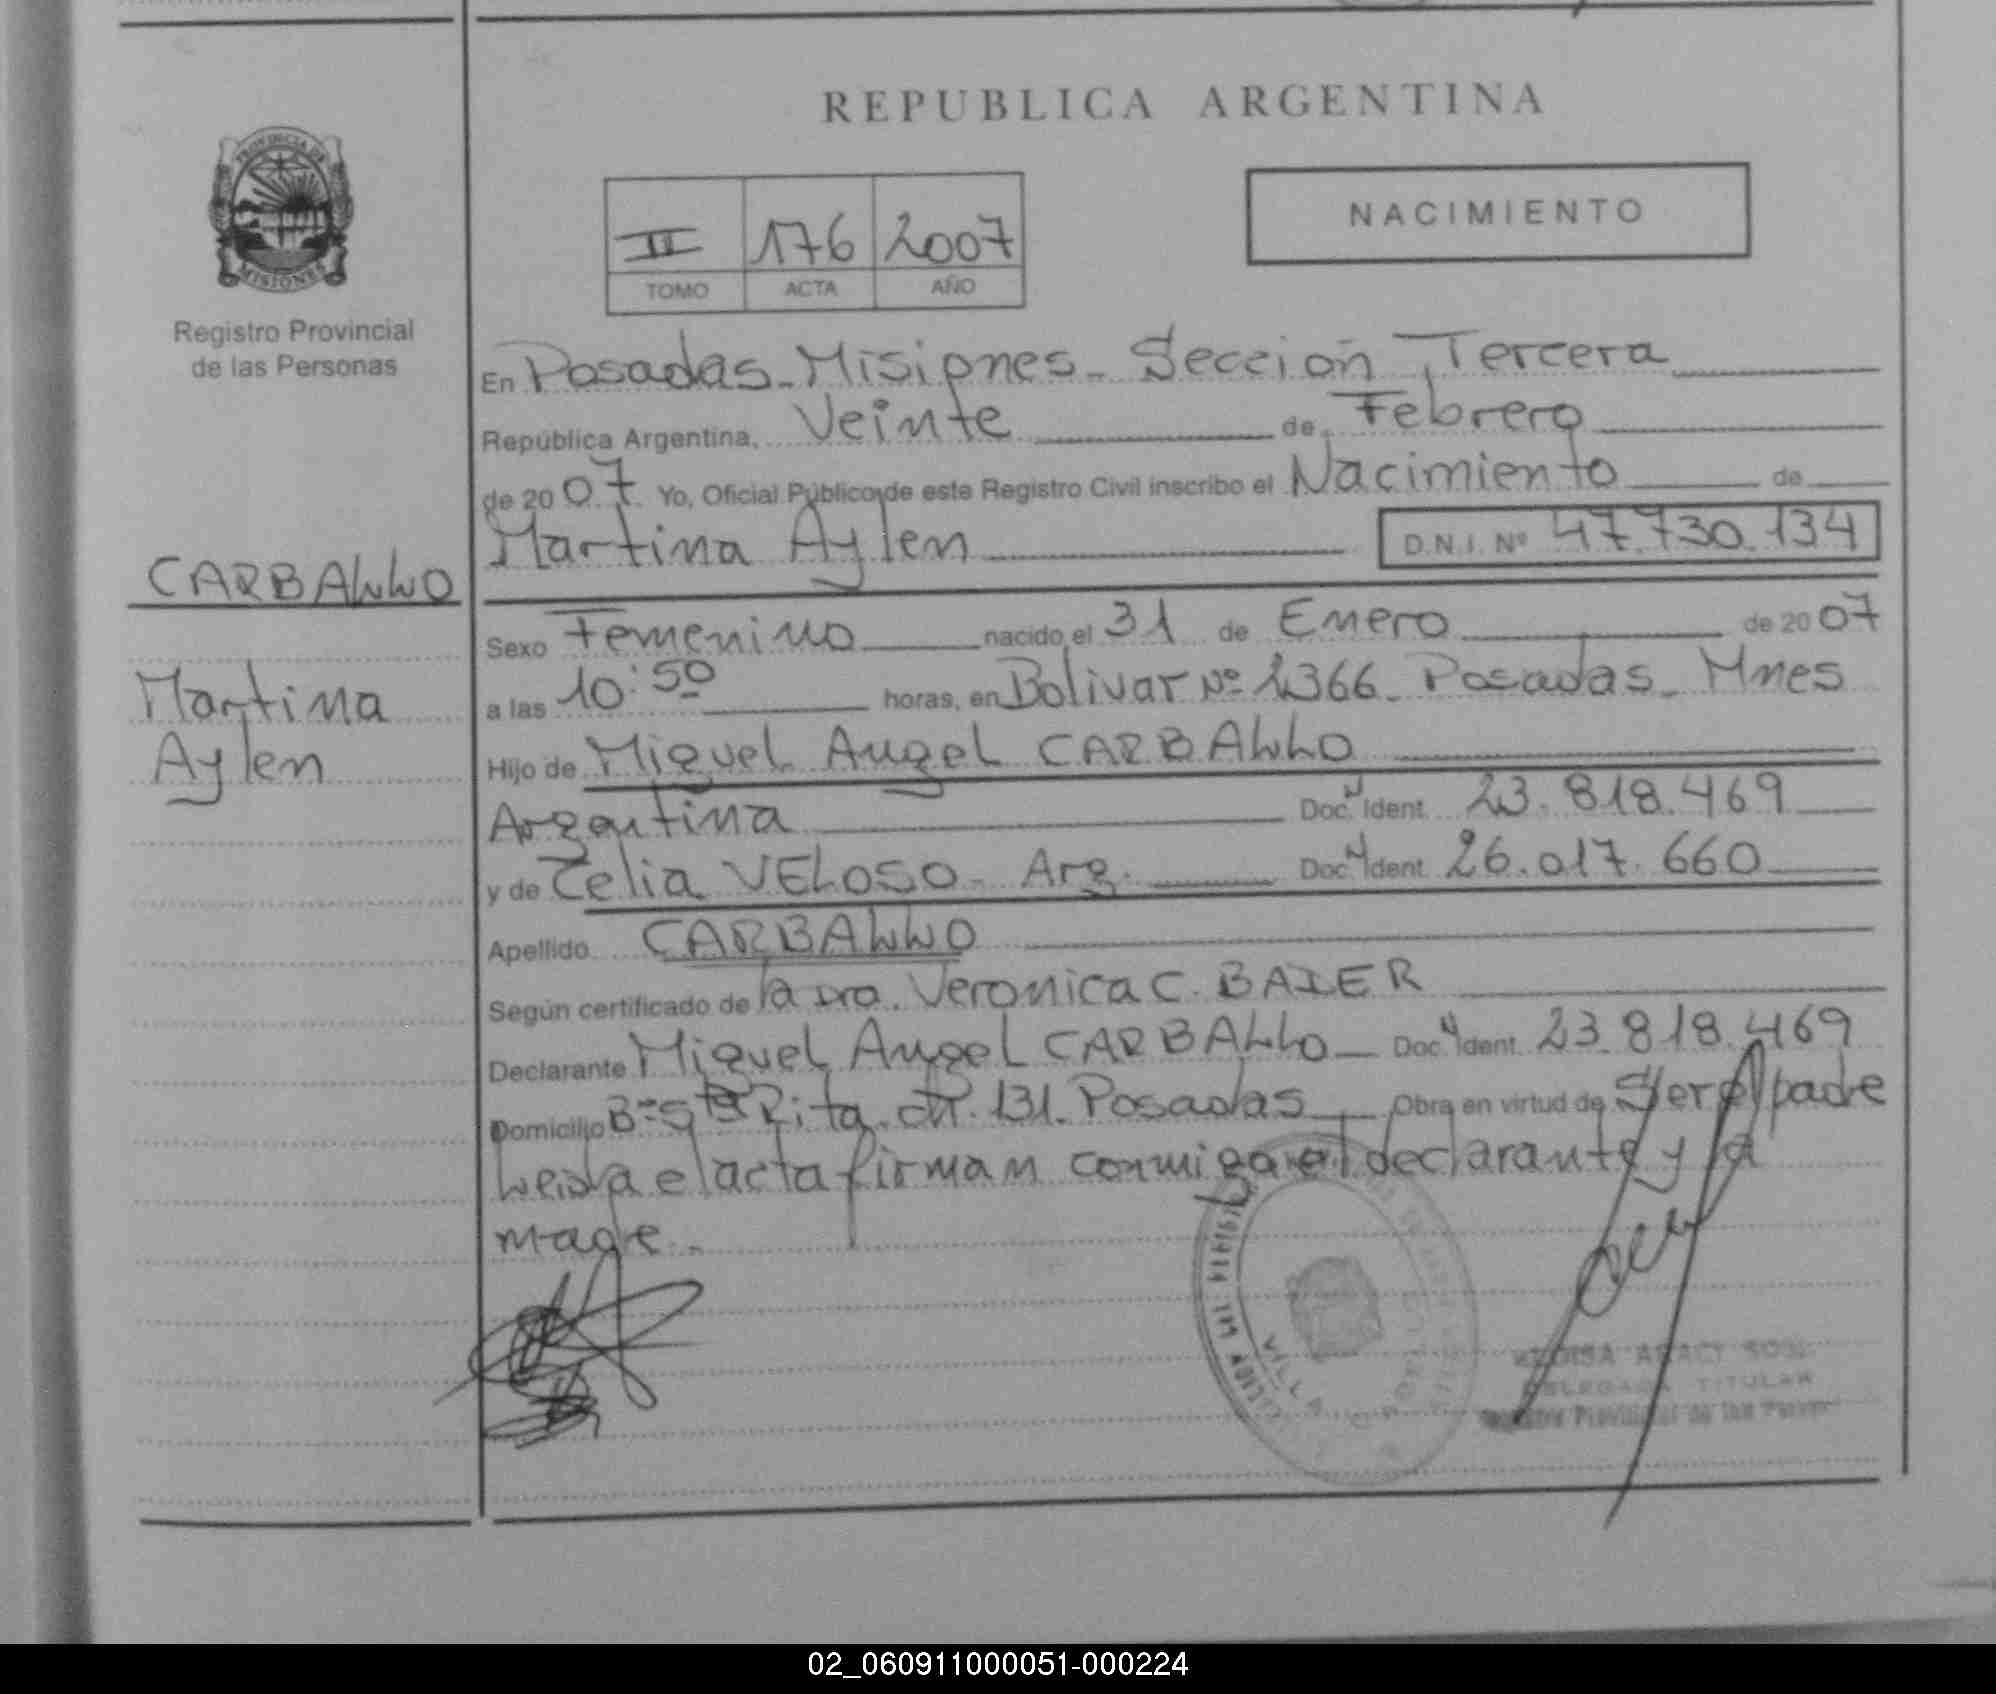 REPUBLICA ARGENTINA
PROVINCIA DE
MISIONES
Registro Provincial
de las Personas
II 176 2007
TOMO ACTA AÑO
NACIMIENTO
En Posadas - Misiones - Sección Tercera
República Argentina, Veinte de Febrero
de 2007 Yo, Oficial Público de este Registro Civil inscribo el Nacimiento de
Martina Aylen D.N.I. Nº 47.730.134
CARBALLO
Martina
Aylen
Sexo Femenino nacido el 31 de Enero de 2007
a las 10:50 horas, en Bolivar Nº 2366 - Posadas - Mnes
Hijo de Miguel Angel CARBALLO
Argentina Doc. Ident. 23.818.469
y de Celia VELOSO - Arg. Doc. Ident. 26.017.660
Apellido CARBALLO
Según certificado de la Dra. Veronica C. BAIER
Declarante Miguel Angel CARBALLO Doc. Ident. 23.818.469
Domicilio Bº Sta Rita 131 - Posadas Obra en virtud de Ser el padre
Leida el acta firman conmigo el declarante y la
madre -
VILLA
DELEGADA TITULAR
Provincial de las
02_060911000051-000224